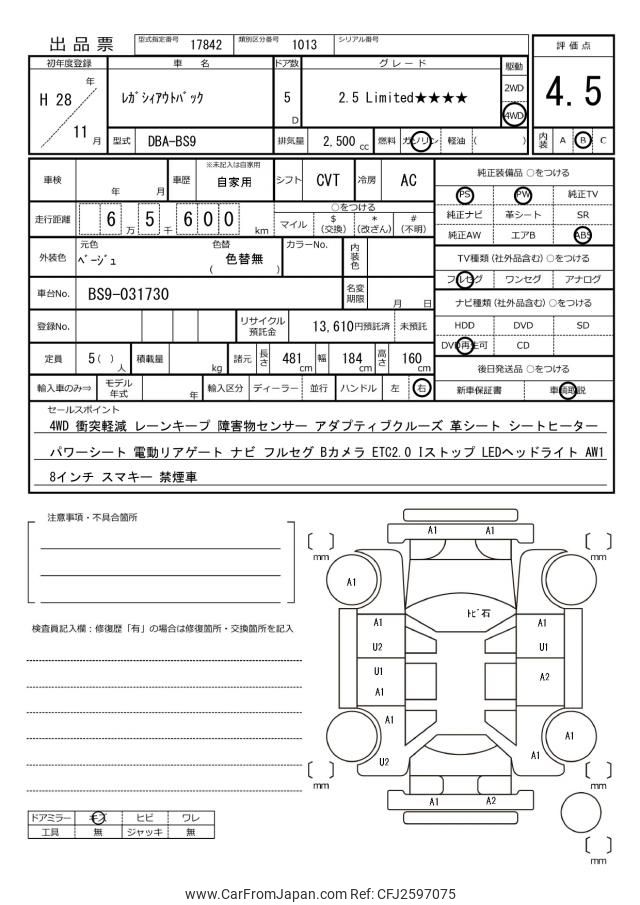 出品票
型式指定番号 17842 類別区分番号 1013 シリアル番号
評価点
4.5
内装 A B C
初年度登録 車名 ドア数 グレード 駆動
H 28 年 11 月
ﾚｶﾞｼｨｱｳﾄﾊﾞｯｸ
5 D
2.5 Limited★★★★
2WD
4WD
型式 DBA-BS9 排気量 2,500 cc 燃料 ガソリン 軽油 ( )
車検 年 月 車歴 ※未記入は自家用 自家用 シフト CVT 冷房 AC
走行距離 6 万 5 千 6 0 0 km
○をつける
マイル $(交換) *(改ざん) #(不明)
外装色 元色 ﾍﾞｰｼﾞｭ 色替 ( 色替無 ) カラーNo. 内装色
車台No. BS9-031730 名変期限 月 日
登録No. リサイクル預託金 13,610円預託済 未預託
定員 5( ) 人 積載量 kg 諸元 長さ 481 cm 幅 184 cm 高さ 160 cm
輸入車のみ⇒ モデル年式 年 輸入区分 ディーラー 並行 ハンドル 左 右
純正装備品 ○をつける
PS PW 純正TV
純正ナビ 革シート SR
純正AW エアB ABS
TV種類(社外品含む)○をつける
フルセグ ワンセグ アナログ
ナビ種類(社外品含む)○をつける
HDD DVD SD
DVD再生可 CD
後日発送品 ○をつける
新車保証書 車輌取説
セールスポイント
4WD 衝突軽減 レーンキープ 障害物センサー アダプティブクルーズ 革シート シートヒーター
パワーシート 電動リアゲート ナビ フルセグ Bカメラ ETC2.0 Iストップ LEDヘッドライト AW1
8インチ スマキー 禁煙車
注意事項・不具合箇所
検査員記入欄：修復歴「有」の場合は修復箇所・交換箇所を記入
A1 A1
mm mm
A1
ﾄﾋﾞ石
A1 A1
U2 U1
U1 A2
A1
A1 A1
U2 A1
mm mm
A1 A2
mm
ドアミラー キズ ヒビ ワレ
工具 無 ジャッキ 無
www.CarFromJapan.com Ref: CFJ2597075